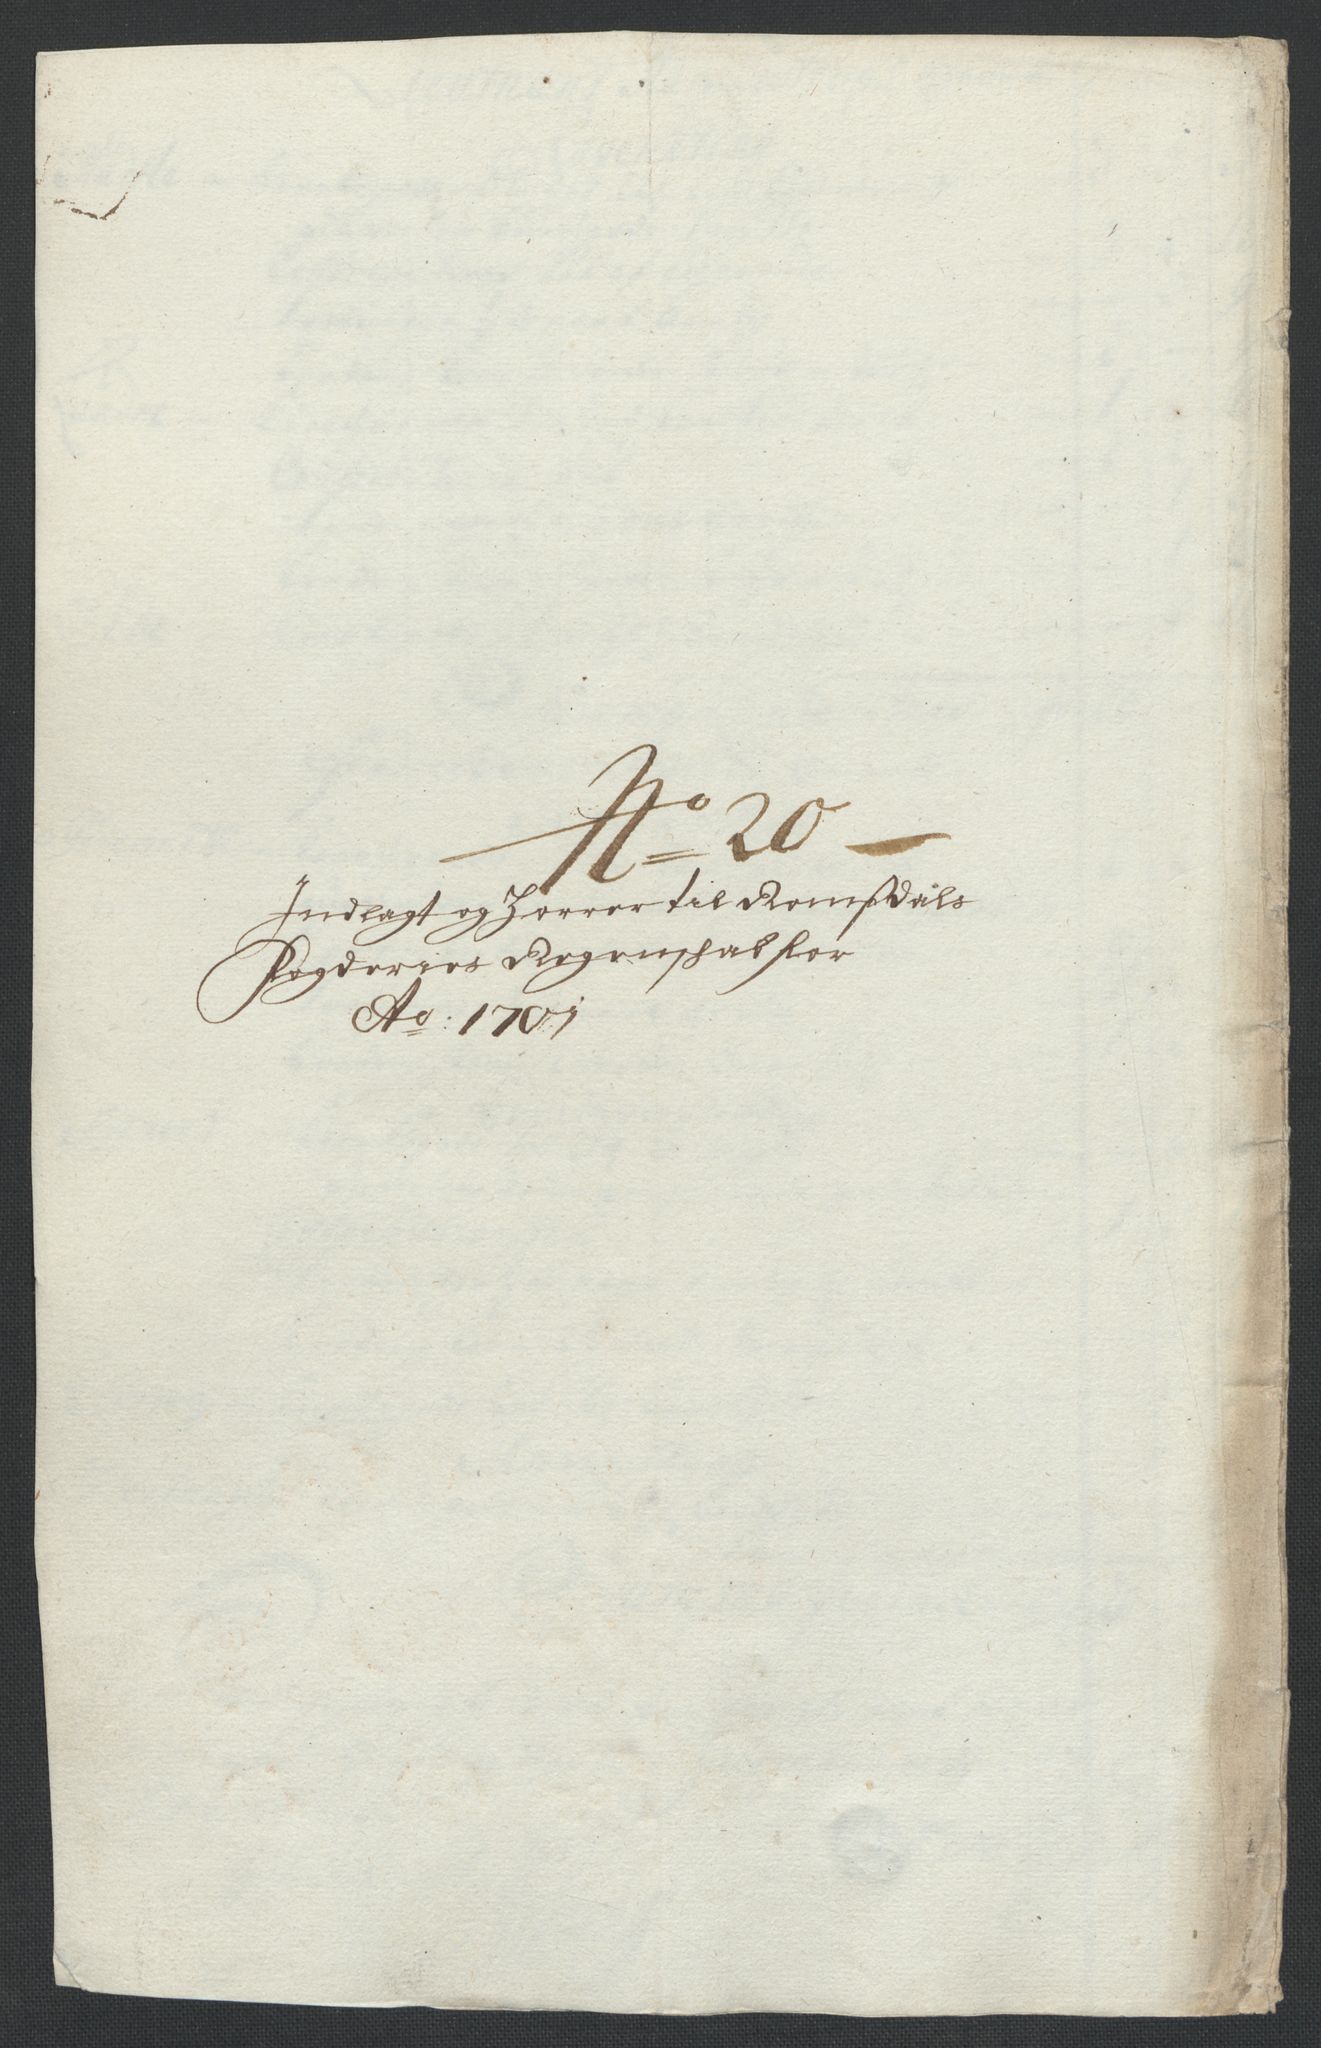 No 20
Indlagt og til Romsdals
Fogderies Regenschab for
Ao: 1707